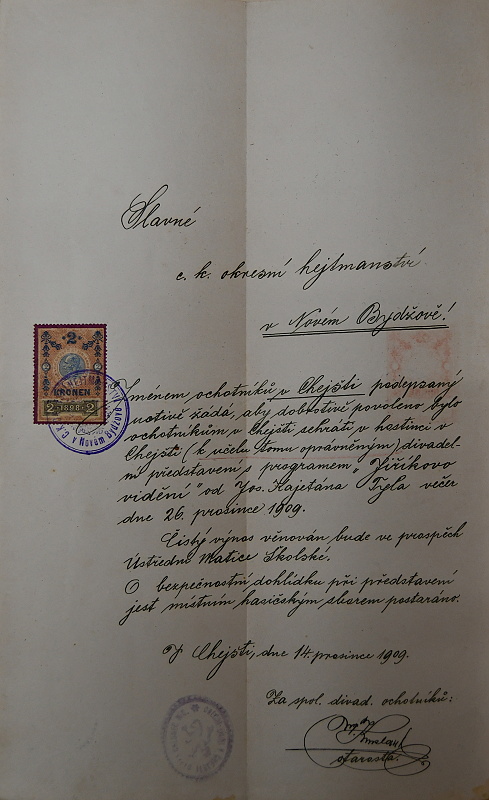 Slavné
c. k. okresní hejtmanství
v Novém Bydžově!
2
KRONEN
2 1898 2
v Novém Bydžově
Jménem ochotníků v Chejšti podepsaný
uctivě žádá, aby dobrotivě povoleno bylo
ochotníkům v Chejšti sehráti v hostinci v
Chejšti (k účelu tomu oprávněným) divadel-
ní představení s programem „Jiříkovo
vidění" od Jos. Kajetána Tyla večer
dne 26. prosince 1909.
Čistý výnos věnován bude ve prospěch
Ústřední Matice Školské.
O bezpečnostní dohlídku při představení
jest místním hasičským sborem postaráno.
V Chejšti, dne 14. prosince 1909.
Za spol. divad. ochotníků:
starosta.